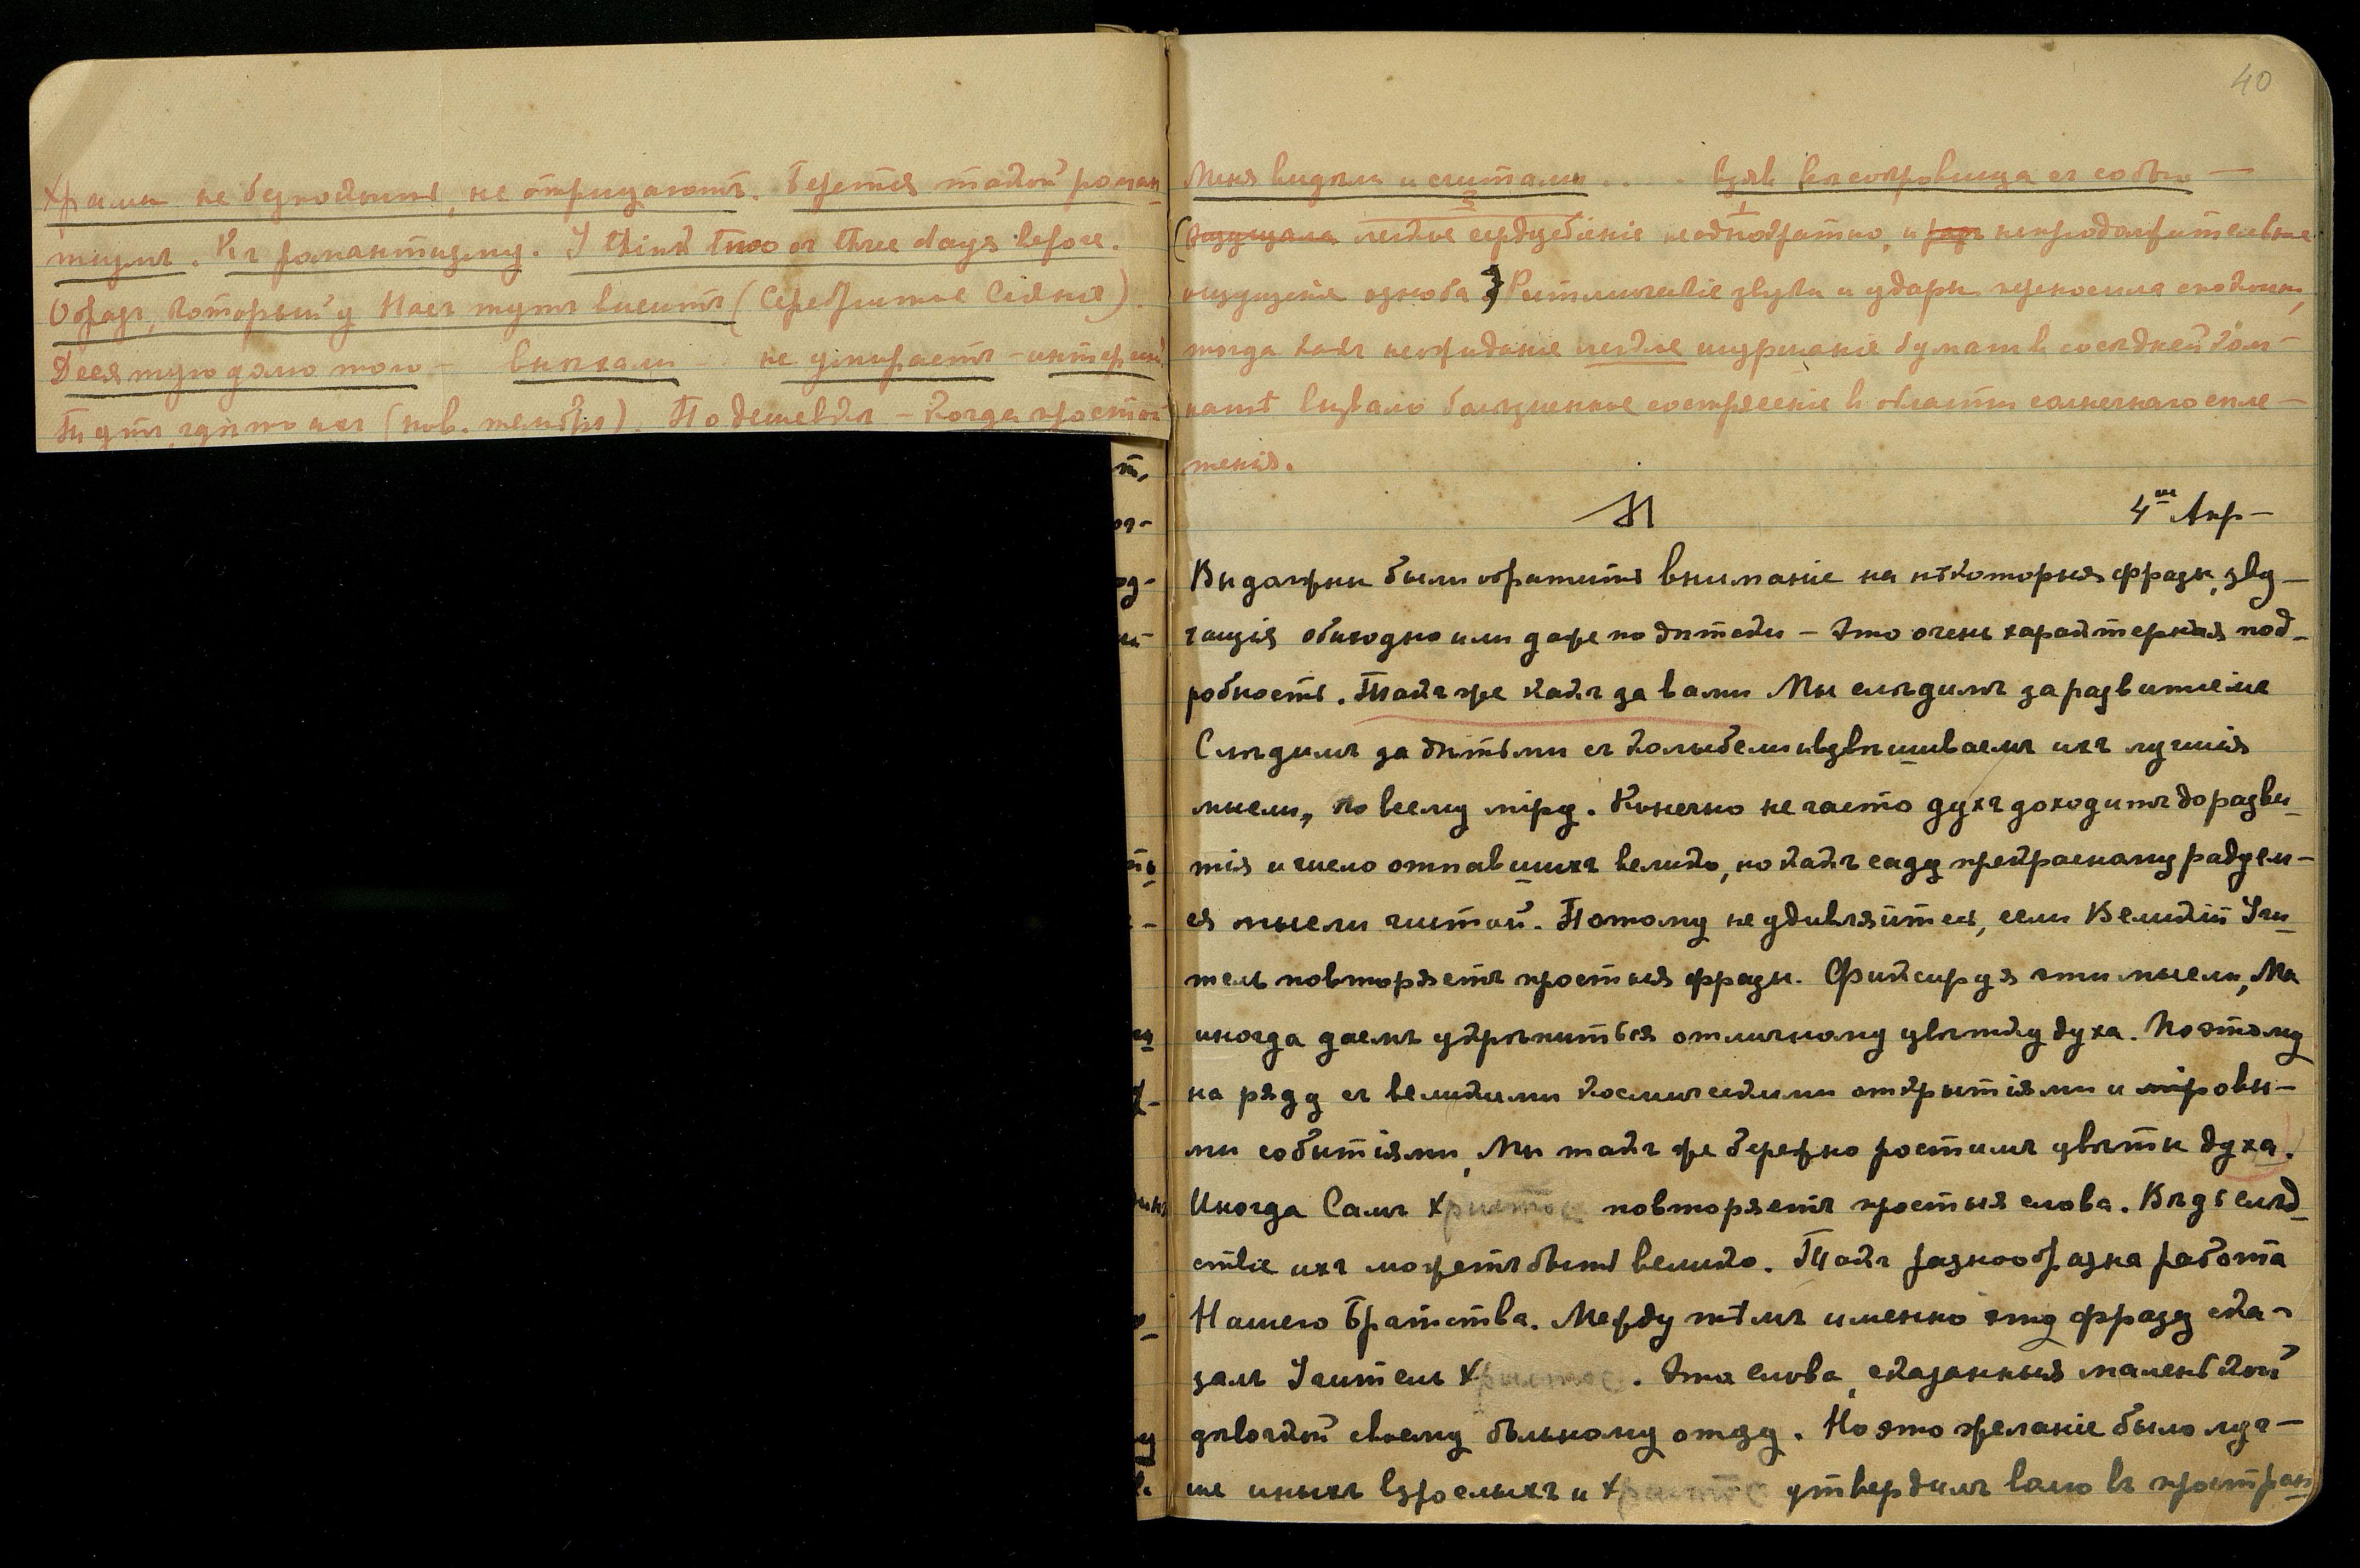 Храмы не безпокоить, не отрицаютъ. Берется такой роман-
тизмъ. Къ романтизму. I think two or three days before.
Образъ, который у Насъ тутъ виситъ (Серебристое Сіянiе).
Десятую долю того – внѣхали не умираетъ –
гдѣ то ихъ (нов. тембръ). Подешевѣли – Когда простой
40
Меня видѣли и считали . . . взявъ всѣ сокровища съ собою –
(Ощущала легкое сердцебіеніе неоднократно, и непродолжительное
ощущеніе озноба) Ритмическіе звуки и удары переносила спокойно,
тогда какъ неожиданное легкое шуршаніе бумаги въ сосѣдней ком-
натѣ вызвало болѣзненное сотрясеніе въ области солнечнаго спле-
тенія.
4го Апр –
Вы должны были обратить вниманіе на нѣкоторыя фразы, зву-
чащія обиходно или даже по дѣтски – Это очень характерная под-
робность. Такъ же какъ за вами Мы слѣдимъ за развитіемъ
Слѣдимъ за дѣтьми съ колыбели и взвѣшиваемъ ихъ лучшія
мысли, по всему міру. Конечно не часто духъ доходитъ до разви-
тія и число отпавшихъ велико, но какъ саду прекрасному радуем-
ся мысли чистой. Потому не удивляйтесь, если Великій Учи-
тель повторяетъ простыя фразы. Фиксируя эти мысли, Мы
иногда даемъ укрѣпиться отличному цвѣтку духа. Поэтому
на ряду съ великими космическими открытіями и міровы-
ми событіями, Мы такъ же бережно ростимъ цвѣты духа.
Иногда Самъ Христосъ повторяетъ простыя слова. Вѣдь слѣд-
ствіе ихъ можетъ быть велико. Такъ разнообразна работа
Нашего Братства. Между тѣмъ именно эту фразу ска-
залъ Учитель Христосъ. Это слова, сказанныя маленькой
дѣвочкой своему больному отцу. Но это желаніе было луч-
ше иныхъ взрослыхъ и Христосъ утвердилъ его въ простран-